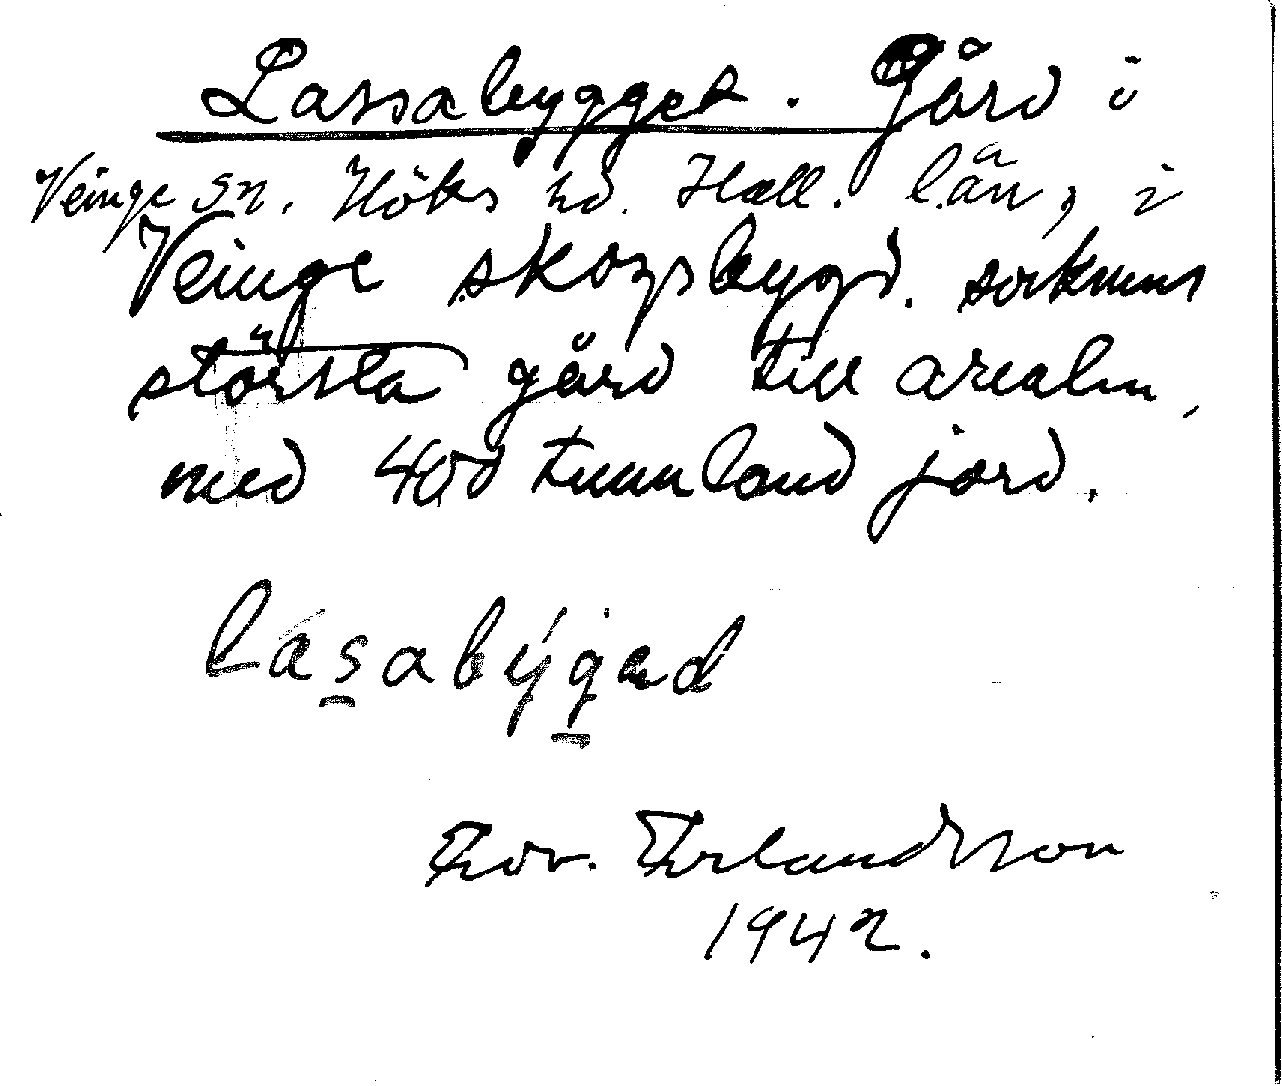 Lassabygget. Gård i
Veinge sn. Höks hd. Hall. län, i
Veinge skogsbygd. socknens
största gård till arealen,
med 400 tunnland jord.
lásabýged
Edv. Erlandsson
1942.